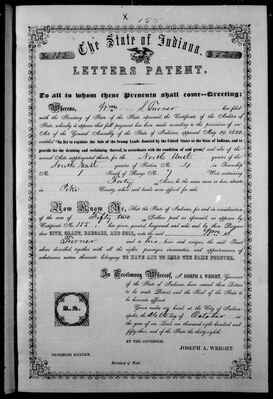 The State of Indiana.
LETTERS PATENT.
To all to whom these Presents shall come—Greeting:
Whereas, Wm has filed
with the Secretary of State of the State aforesaid the Certificate of the Auditor of
State, whereby it appears that full payment has been made according to the provisions of an
Act of the General Assembly of the State of Indiana, approved May
entitled "An Act to regulate the Sale of the Swamp Lands donated by the United States to the State of Indiana, and to
provide for the draining and reclaiming thereof, in accordance with the condition of said grant," and also of the
several Acts supplemental thereto, for the North West quarter of the
South East quarter of Section No. in Township
No. 1 of Range No. 7 West containing
Forty Acres, be the same more or less, situate
in Pike County, which said tracts were offered for sale
Now Know Ye, That the State of Indiana, for and in consideration
of the sum of Fifty two Dollars paid as aforesaid, as appears by
Certificate No. 152 has given, granted, bargained and sold, and by these Presents
GIVE, GRANT, BARGAIN, AND SELL, unto the said Wm
and to heirs, the tract of Land
above described, together with all the rights, privileges, immunities, and appurtenances of
whatsoever nature thereunto belonging, TO HAVE AND TO HOLD THE SAME FOREVER.
In Testimony Whereof, I, JOSEPH A. WRIGHT, Governor
of the State of Indiana, have caused these Letters
to be made Patent, and the Seal of the State to
be hereunto affixed.
Given under my hand, at the City of Indianapolis,
the day of October in
the year of our Lord one thousand eight hundred and
fifty and of the State the thirty-eighth.
BY THE GOVERNOR,
JOSEPH A. WRIGHT.
Secretary of State.